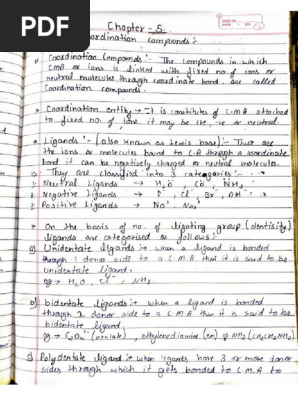 PDF
Chapter - 5
Coordination Compounds :-
* Coordination Compounds :- The compounds in which
CMA or ions is linked with fixed no of ions or
neutral molecules through coordinate bond. are called
Coordination compounds.
* Coordination entity → It is constitutes of C.M.A attached
to fixed no. of ions it may be +ve, -ve or neutral
* Ligands :- (also known as lewis base) :- These are
the ions or molecules bound to C.A through a coordinate
bond it can be negatively charged or neutral molecules.
They are classified into 3 categories :-
1. Neutral Ligands → H₂O, CO, NH₃
2. Negative ligands → F⁻, Cl⁻, Br⁻, OH⁻
3. Positive Ligands → NO⁺,
* On the basis of no. of ligating group (denticity)
ligands are categorised as follows :-
a) Unidentate ligands :→ when a ligand is bonded
through 1 donor side to a C.M.A then it is said to be
Unidentate ligand.
eg → H₂O, Cl⁻, NH₃
b) bidentate ligands :→ when a ligand is bonded
through 2 donor side to a C.M.A then it is said to be
bidentate ligand
eg :→ C₂O₄²⁻ (oxalate), ethylenediamine (en)
c) Polydentate ligand :→ when ligands have 3 or more donor
sides through which it gets bonded to C.M.A to